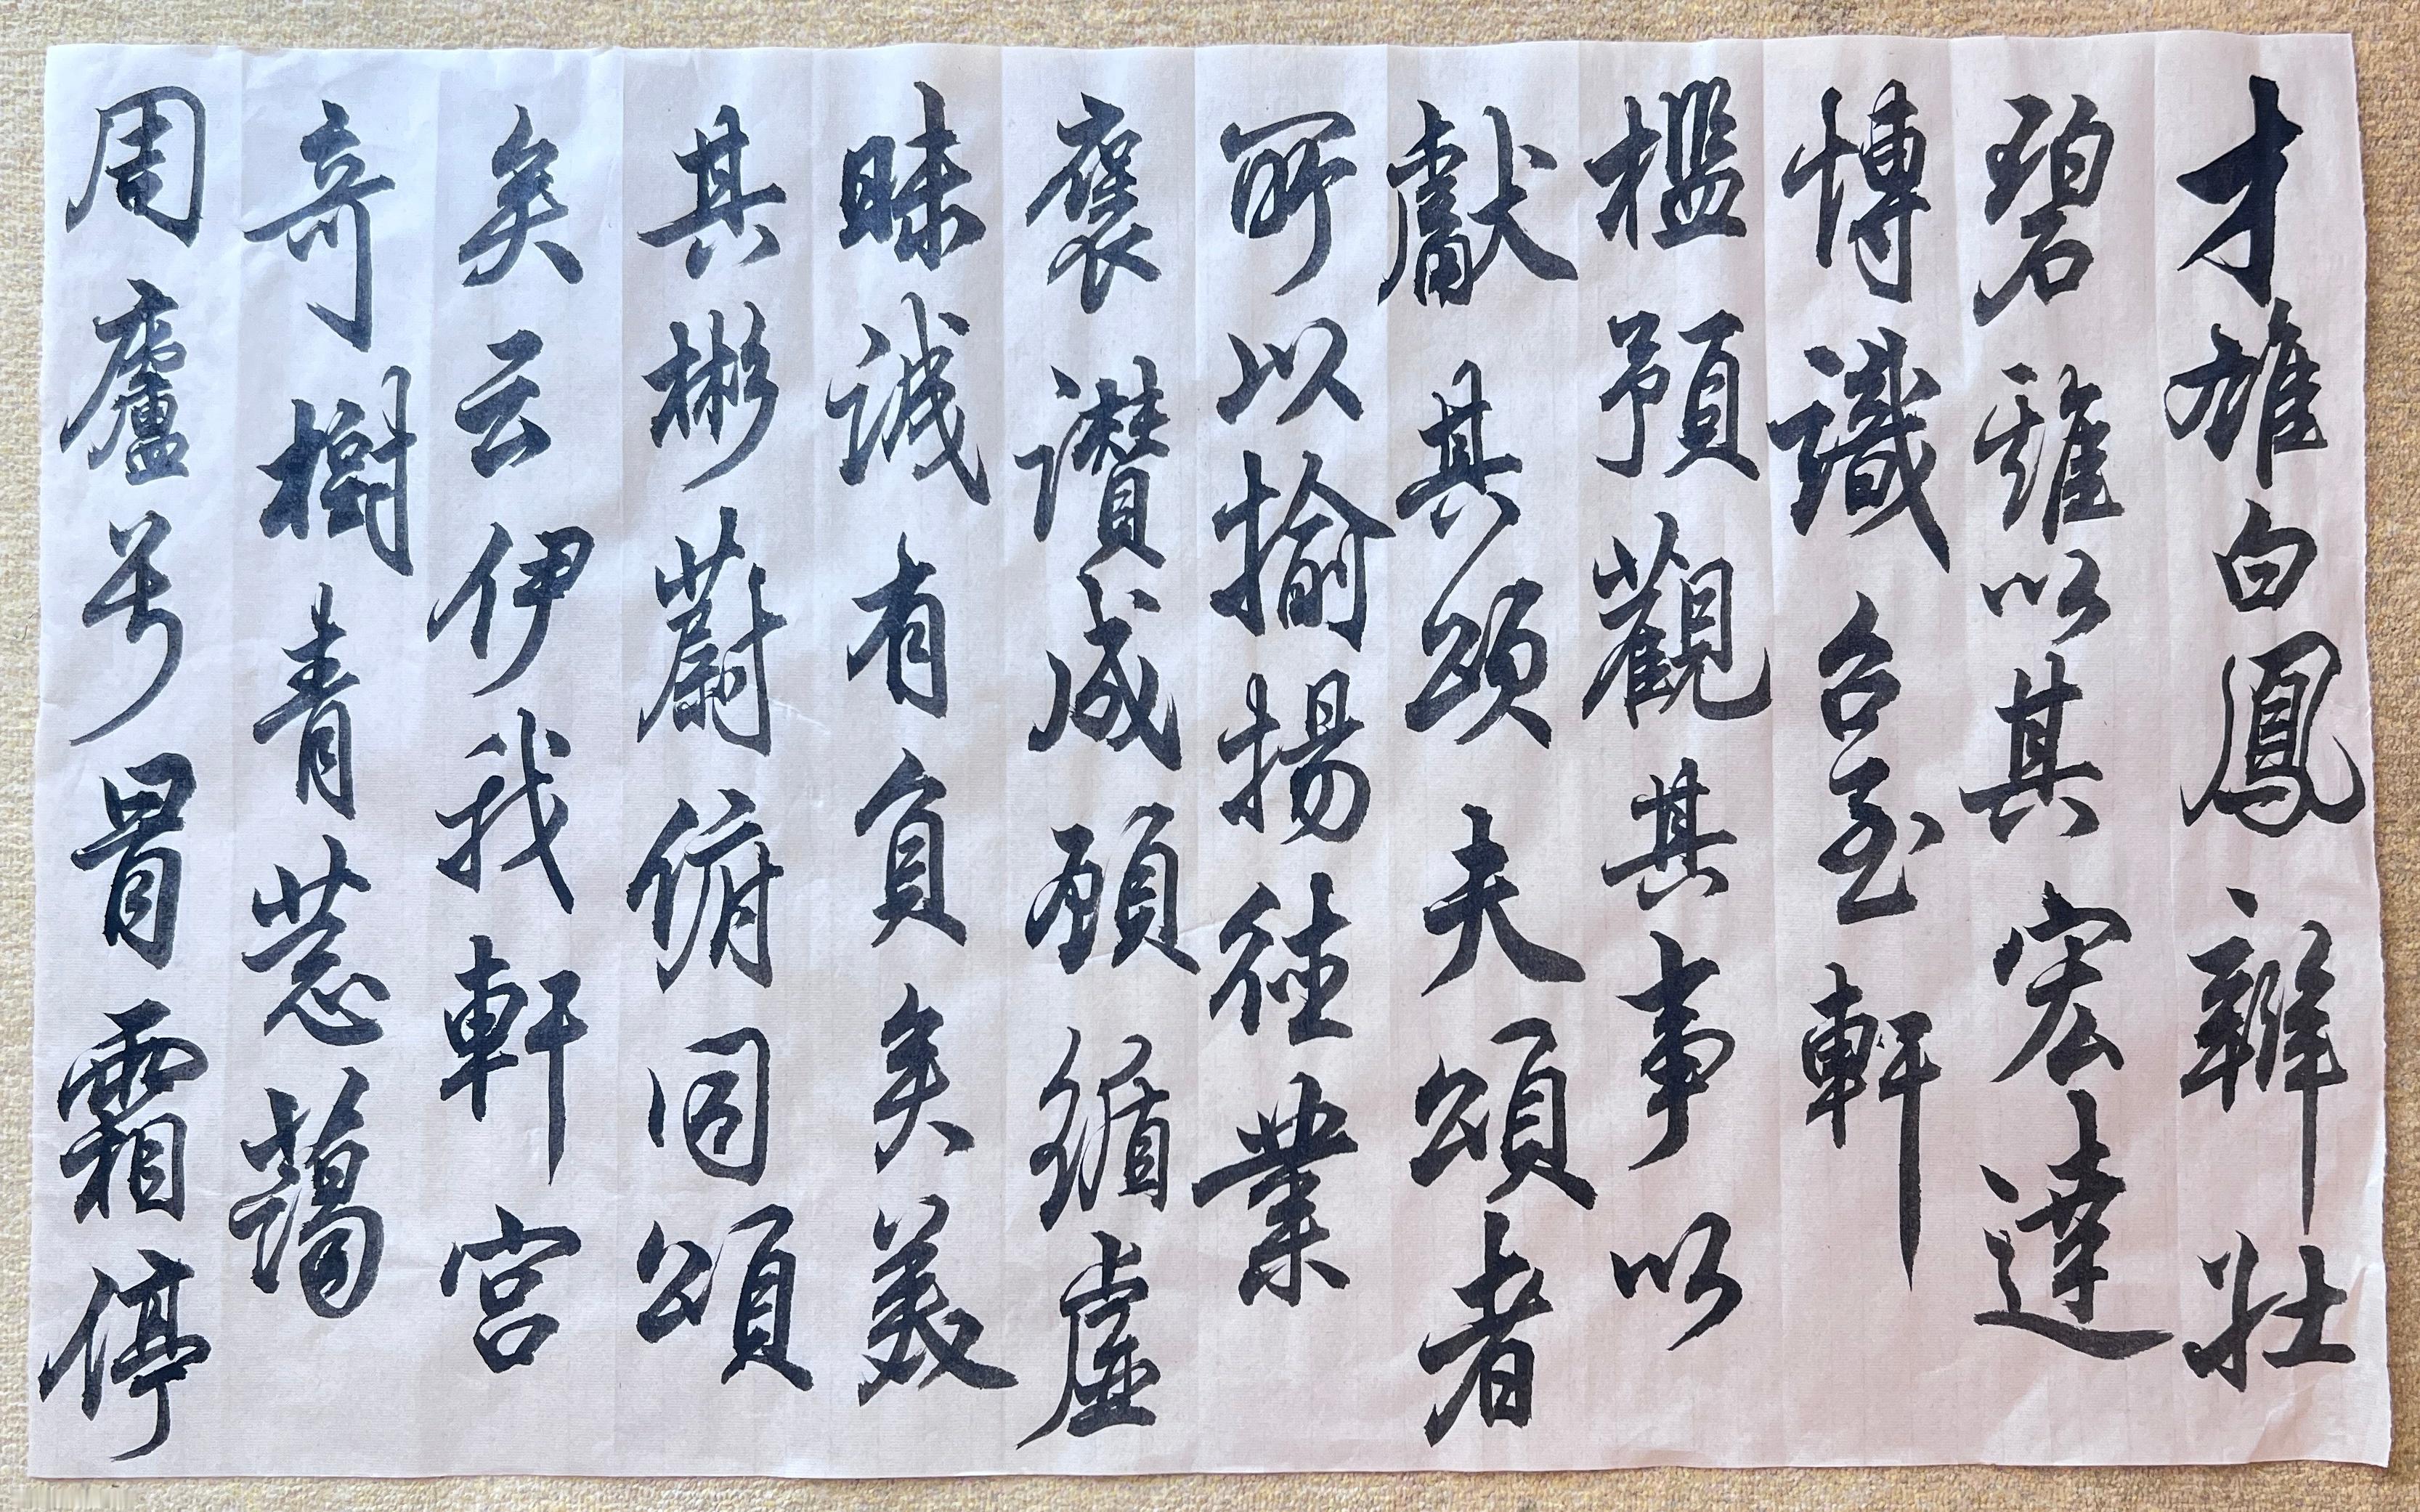 才雄白鳳辯壯
碧雞以其宏達
博識召至軒
檻預觀其事以
獻其頌夫頌者
所以揄揚德業
褒讚成顧循虛
昧誠有負矣美
其彬蔚俯同頌
矣云伊我軒宮
奇樹青蔥藹
周廬兮冒霜停